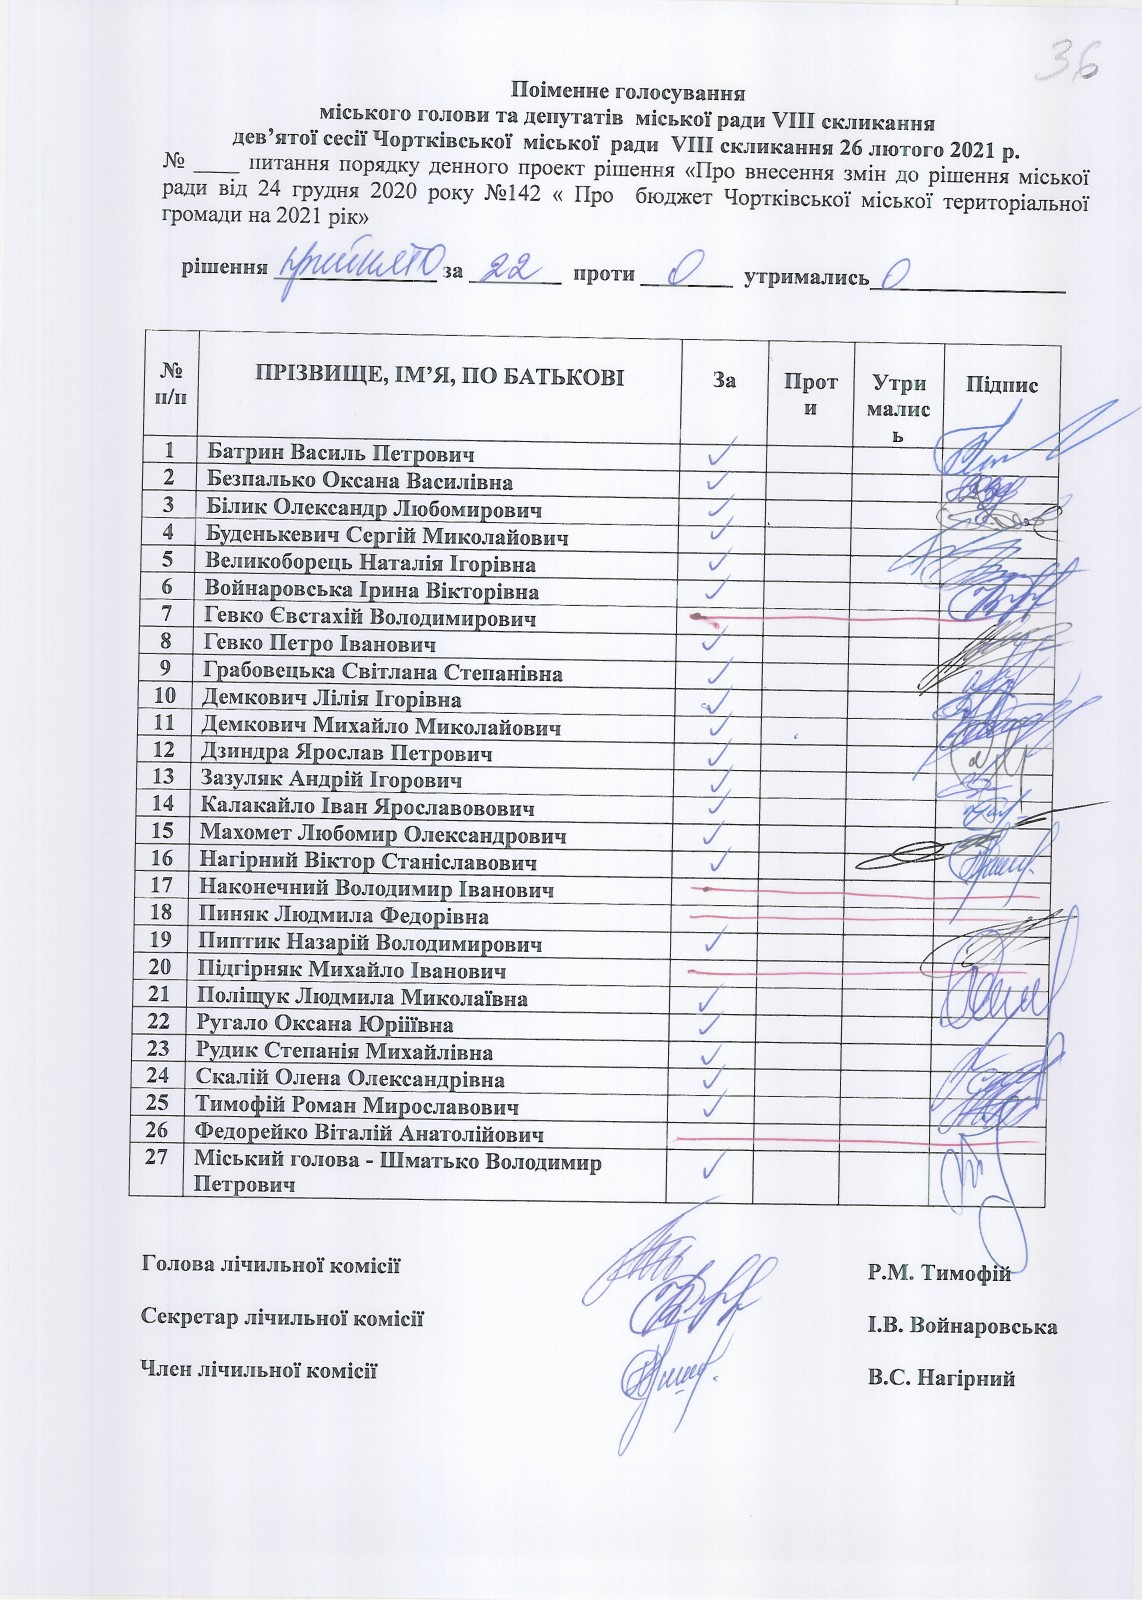 36
Поіменне голосування
міського голови та депутатів міської ради VIII скликання
дев’ятої сесії Чортківської міської ради VIII скликання 26 лютого 2021 р.
№ ____ питання порядку денного проект рішення «Про внесення змін до рішення міської
ради від 24 грудня 2020 року №142 « Про бюджет Чортківської міської територіальної
громади на 2021 рік»
рішення прийнято за 22 проти 0 утримались 0
№ п/п ПРІЗВИЩЕ, ІМ’Я, ПО БАТЬКОВІ За Проти Утримались Підпис
1 Батрин Василь Петрович ✓
2 Безпалько Оксана Василівна ✓
3 Білик Олександр Любомирович ✓
4 Буденькевич Сергій Миколайович ✓
5 Великоборець Наталія Ігорівна ✓
6 Войнаровська Ірина Вікторівна ✓
7 Гевко Євстахій Володимирович
8 Гевко Петро Іванович ✓
9 Грабовецька Світлана Степанівна ✓
10 Демкович Лілія Ігорівна ✓
11 Демкович Михайло Миколайович ✓
12 Дзиндра Ярослав Петрович ✓
13 Зазуляк Андрій Ігорович ✓
14 Калакайло Іван Ярославовович ✓
15 Махомет Любомир Олександрович ✓
16 Нагірний Віктор Станіславович ✓
17 Наконечний Володимир Іванович
18 Пиняк Людмила Федорівна
19 Пиптик Назарій Володимирович ✓
20 Підгірняк Михайло Іванович
21 Поліщук Людмила Миколаївна ✓
22 Ругало Оксана Юріїївна ✓
23 Рудик Степанія Михайлівна ✓
24 Скалій Олена Олександрівна ✓
25 Тимофій Роман Мирославович ✓
26 Федорейко Віталій Анатолійович
27 Міський голова - Шматько Володимир ✓
Петрович
Голова лічильної комісії Р.М. Тимофій
Секретар лічильної комісії І.В. Войнаровська
Член лічильної комісії В.С. Нагірний